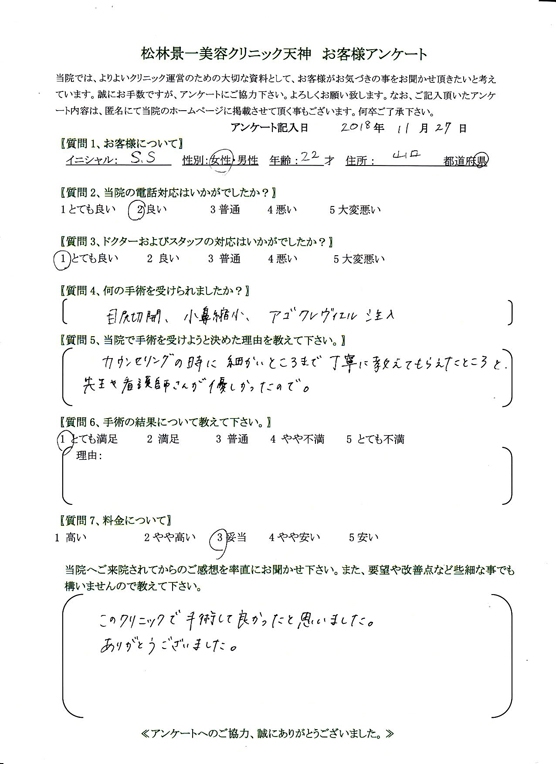 松林景一美容クリニック天神　お客様アンケート
当院では、よりよいクリニック運営のための大切な資料として、お客様がお気づきの事をお聞かせ頂きたいと考え
ています。誠にお手数ですが、アンケートにご協力下さい。よろしくお願い致します。なお、ご記入頂いたアンケ
ート内容は、匿名にて当院のホームページに掲載させて頂く事もございます。何卒ご了承下さい。
アンケート記入日　2018年 11月 27日
〖質問 1、お客様について〗
イニシャル： S.S　性別：女性・男性　年齢：22才　住所： 山口　都道府県
〖質問 2、当院の電話対応はいかがでしたか？〗
1 とても良い　2 良い　3 普通　4 悪い　5 大変悪い
〖質問 3、ドクターおよびスタッフの対応はいかがでしたか？〗
1 とても良い　2 良い　3 普通　4 悪い　5 大変悪い
〖質問 4、何の手術を受けられましたか？〗
目尻切開、小鼻縮小、アゴクレヴィエル注入
〖質問 5、当院で手術を受けようと決めた理由を教えて下さい。〗
カウンセリングの時に細かいところまで丁寧に教えてもらえたところと、
先生や看護師さんが優しかったので。
〖質問 6、手術の結果について教えて下さい。〗
1 とても満足　2 満足　3 普通　4 やや不満　5 とても不満
理由：
〖質問 7、料金について〗
1 高い　2 やや高い　3 妥当　4 やや安い　5 安い
当院へご来院されてからのご感想を率直にお聞かせ下さい。また、要望や改善点など些細な事でも
構いませんので教えて下さい。
このクリニックで手術して良かったと思いました。
ありがとうございました。
≪アンケートへのご協力、誠にありがとうございました。≫